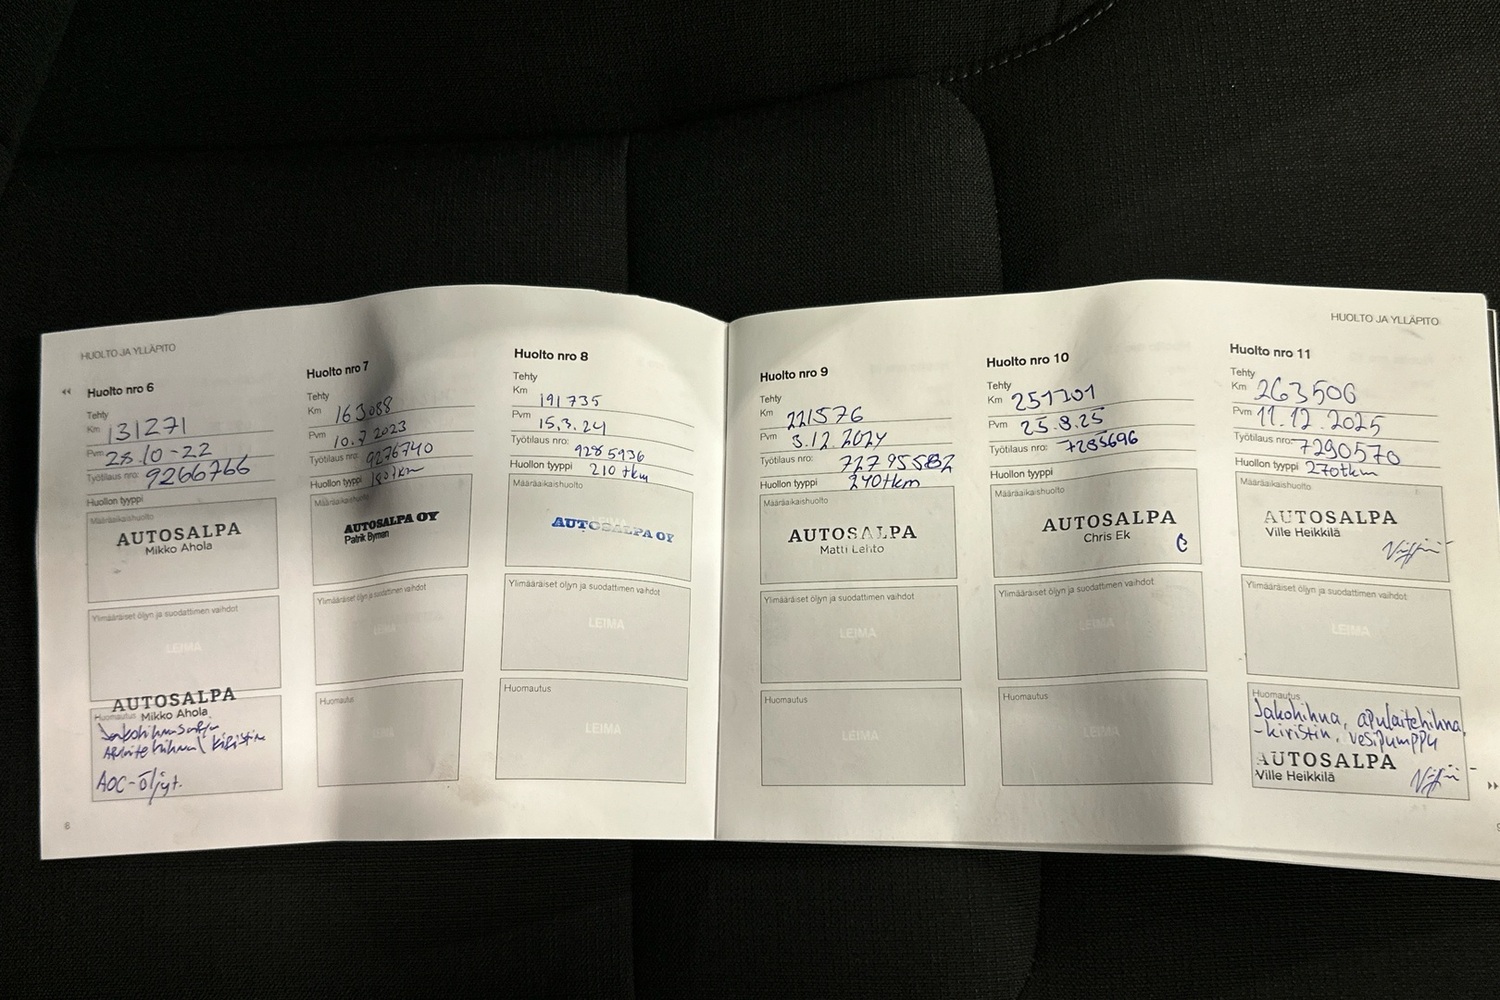 HUOLTO JA YLLÄPITO
Huolto nro 6
Tehty
Km 131271
Pvm 28.10-22
Työtilaus nro: 9266766
Huollon tyyppi
Määräaikaishuolto
AUTOSALPA
Mikko Ahola
Ylimääräiset öljyn ja suodattimen vaihdot
LEIMA
AUTOSALPA
Huomautus Mikko Ahola
AOC-öljyt.
8
Huolto nro 7
Tehty
Km 163088
Pvm 10.7 2023
Työtilaus nro: 9276740
Huollon tyyppi 180tkm
Määräaikaishuolto
AUTOSALPA OY
Patrik Byman
Ylimääräiset öljyn ja suodattimen vaihdot
LEIMA
Huomautus
LEIMA
Huolto nro 8
Tehty
Km 191735
Pvm 15.3.24
Työtilaus nro: 9285936
Huollon tyyppi 210 tkm
Määräaikaishuolto
AUTOSALPA OY
Ylimääräiset öljyn ja suodattimen vaihdot
LEIMA
Huomautus
LEIMA
HUOLTO JA YLLÄPITO
Huolto nro 9
Tehty
Km 221576
Pvm 3.12.2024
Työtilaus nro:
Huollon tyyppi 240tkm
Määräaikaishuolto
AUTOSALPA
Matti Lehto
Ylimääräiset öljyn ja suodattimen vaihdot
LEIMA
Huomautus
LEIMA
Huolto nro 10
Tehty
Km 251701
Pvm 25.8.25
Työtilaus nro: 7285696
Huollon tyyppi
Määräaikaishuolto
AUTOSALPA
Chris Ek
Ylimääräiset öljyn ja suodattimen vaihdot
LEIMA
Huomautus
LEIMA
Huolto nro 11
Tehty
Km 263506
Pvm 11.12.2025
Työtilaus nro: 7290570
Huollon tyyppi 270tkm
Määräaikaishuolto
AUTOSALPA
Ville Heikkilä
Ylimääräiset öljyn ja suodattimen vaihdot
LEIMA
Huomautus
Jakohihna, apulaitehihna,
-kiristin, vesipumppu
AUTOSALPA
Ville Heikkilä